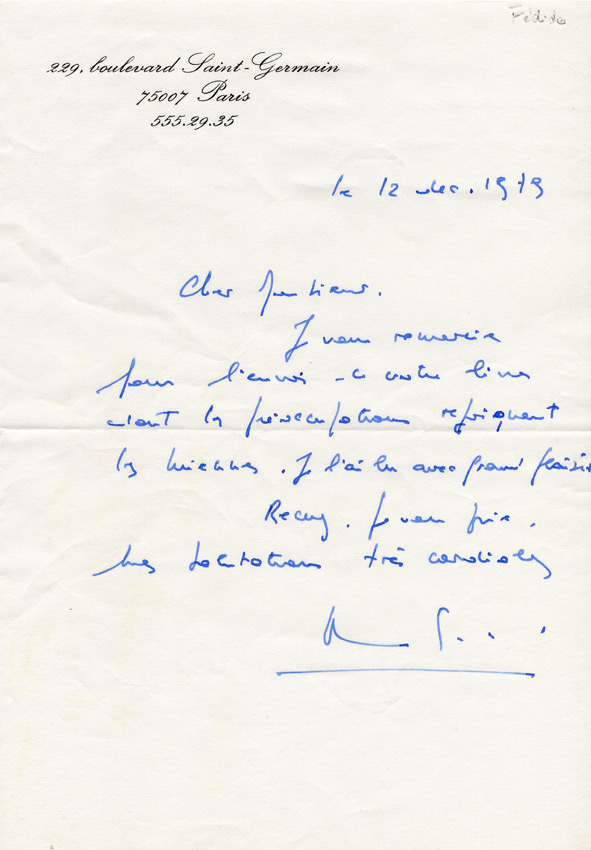 Fédida
229, boulevard Saint-Germain
75007 Paris
555.29.35
le 12 dec. 1979
Cher Monsieur.
Je vous remercie
pour l'envoi de votre livre
dont les préoccupations rejoignent
les miennes. Je l'ai lu avec grand plaisir
Recevez, je vous prie,
mes salutations très cordiales